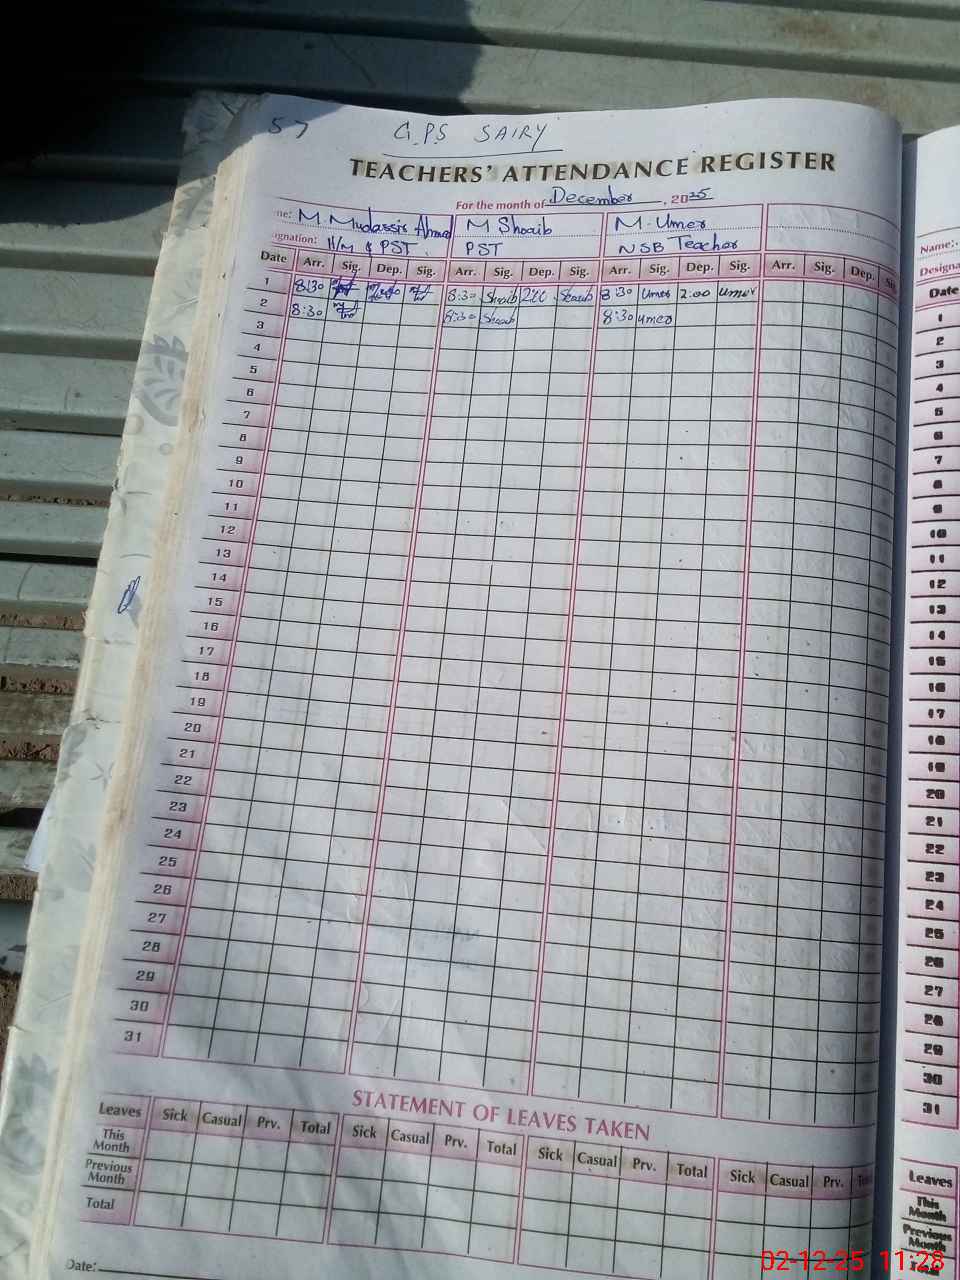 57 G.P.S SAIRY
TEACHERS' ATTENDANCE REGISTER
For the month of December, 2025
me: M. Mudassir Ahmed M Shoaib M. Umer
ignation: H/M & PST PST NSB Teacher
Date Arr. Sig. Dep. Sig. Arr. Sig. Dep. Sig. Arr. Sig. Dep. Sig. Arr. Sig. Dep. Si
1 8:30 8:30 Shoaib 2:00 Shoaib 8:30 Umer 2:00 Umer
2 8:30 8:30 Shoaib 8:30 Umer
3
4
5
6
7
8
9
10
11
12
13
14
15
16
17
18
19
20
21
22
23
24
25
26
27
28
29
30
31
STATEMENT OF LEAVES TAKEN
Leaves Sick Casual Prv. Total Sick Casual Prv. Total Sick Casual Prv. Total Sick Casual Prv.
This
Month
Previous
Month
Total
Date:
Name:
Designa
Date
1
2
3
4
5
6
7
8
9
10
11
12
13
14
15
16
17
18
19
20
21
22
23
24
25
26
27
28
29
30
31
Leaves
This
Month
Previous
Month
Total
02-12-25 11:28